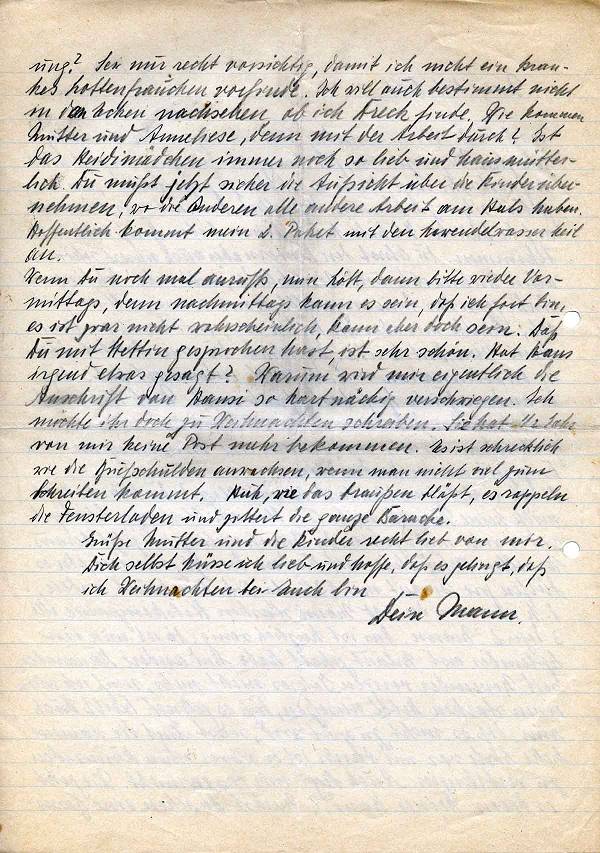 ung? Sei nur recht vorsichtig, damit ich nicht ein kran-
kes frauchen vorfinde. Ich will auch bestimmt nicht
in den Ecken nachsehen, ob ich Dreck finde. Wie kommen
Mutter und Anneliese, denn mit der Arbeit durch? Ist
das Heidimädchen immer noch so lieb und hausmütter-
lich. Du mußt jetzt sicher die Aufsicht über die Kinder über-
nehmen, wo die Anderen alle andere Arbeit am Hals haben.
Hoffentlich kommt mein 2. Paket mit den heil
an.
Wenn Du noch mal anrufst, dann bitte wieder Vor-
mittags, denn nachmittags kann es sein, daß ich fort bin,
es ist zwar nicht wahrscheinlich, kann aber doch sein. Daß
Du mit gesprochen hast, ist sehr schön. Hat Hans
irgend etwas gesagt? Warum wird mir eigentlich die
Anschrift von Hansi so hartnäckig verschwiegen. Ich
möchte ihr doch zu Weihnachten schreiben. Sie hat
von mir keine Post mehr bekommen. Es ist schrecklich
wie die Briefschulden anwachsen, wenn man nicht viel zum
Schreiben kommt. Huh, wie das draußen bläßt, es rappeln
die Fensterladen und zittert die ganze Baracke.
Grüße Mutter und die Kinder recht lieb von mir.
Dich selbst küsse ich lieb und hoffe, daß es gelingt, daß
ich Weihnachten bei Euch bin
Dein Mann.